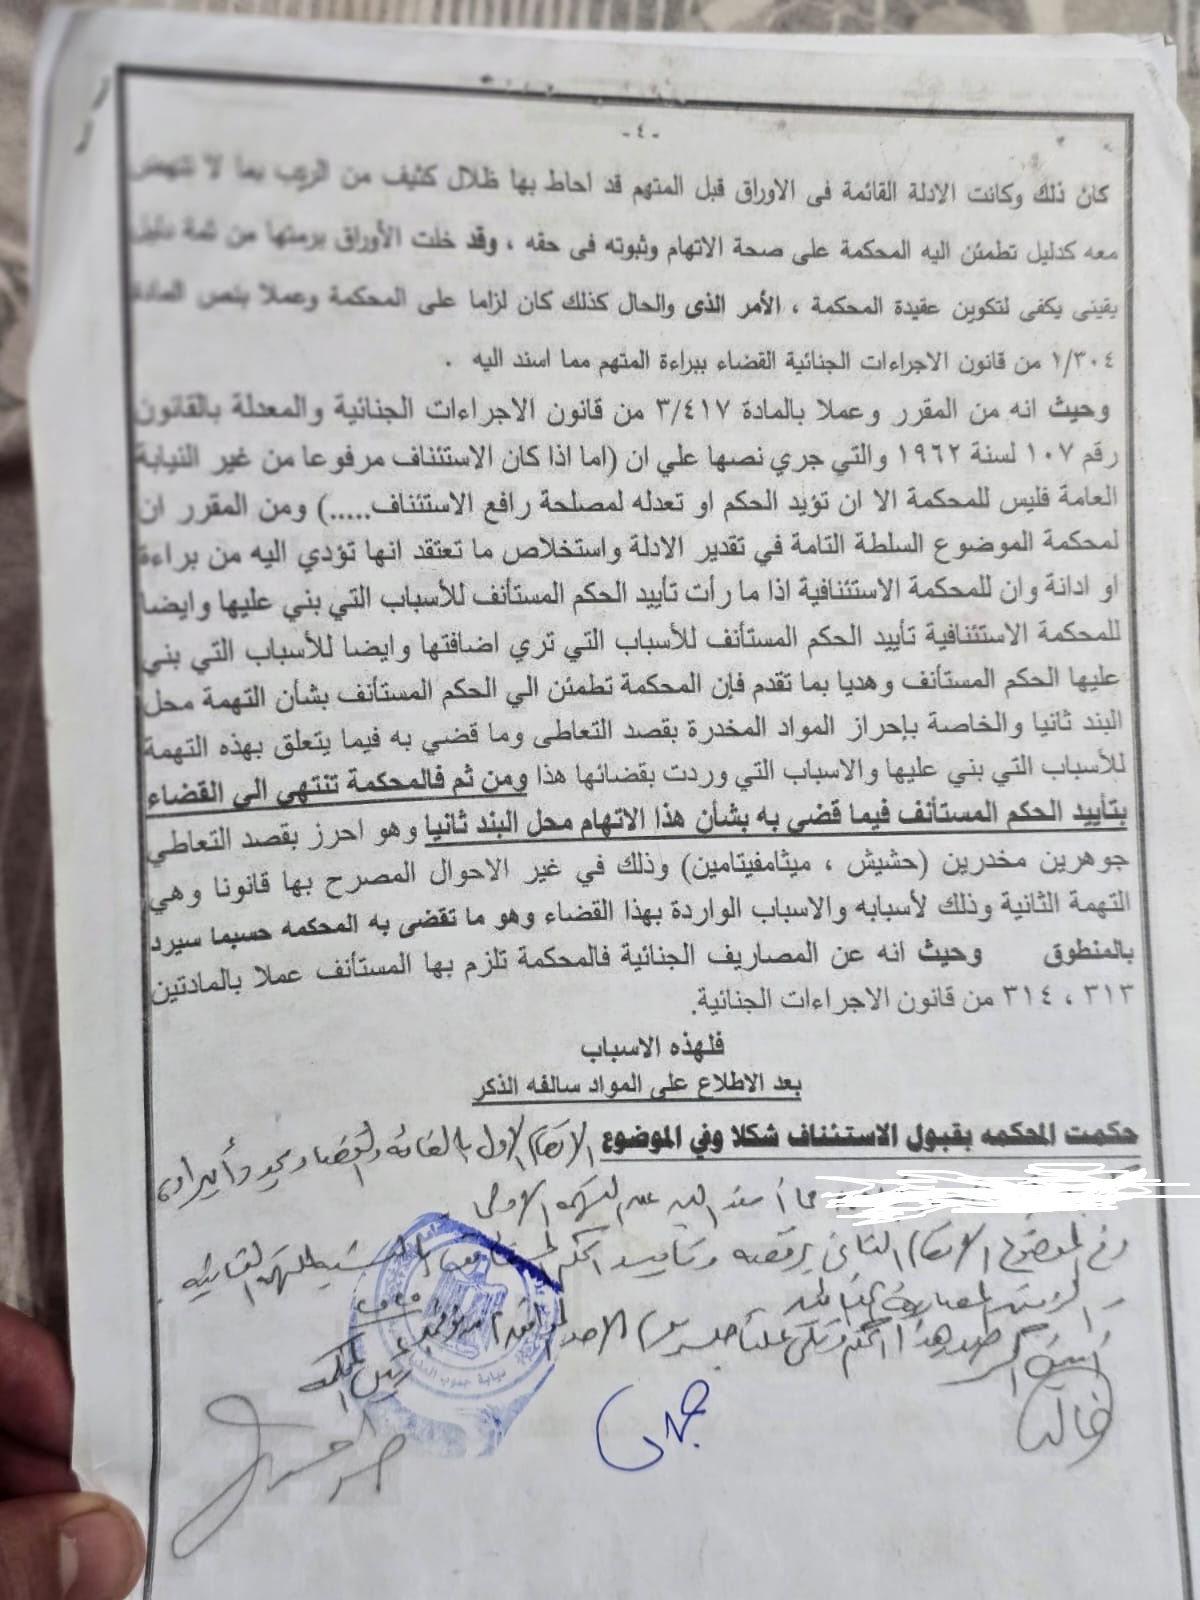 -٤-
كان ذلك وكانت الادلة القائمة فى الاوراق قبل المتهم قد احاط بها ظلال كثيف من الريب بما لا تنهض
معه كدليل تطمئن اليه المحكمة على صحة الاتهام وثبوته فى حقه ، وقد خلت الأوراق برمتها من ثمة دليل
يقينى يكفى لتكوين عقيدة المحكمة ، الأمر الذى والحال كذلك كان لزاما على المحكمة وعملا بنص المادة
١/٣٠٤ من قانون الاجراءات الجنائية القضاء ببراءة المتهم مما اسند اليه .
وحيث انه من المقرر وعملا بالمادة ٣/٤١٧ من قانون الاجراءات الجنائية والمعدلة بالقانون
رقم ١٠٧ لسنة ١٩٦٢ والتي جري نصها علي ان (اما اذا كان الاستئناف مرفوعا من غير النيابة
العامة فليس للمحكمة الا ان تؤيد الحكم او تعدله لمصلحة رافع الاستئناف.....) ومن المقرر ان
لمحكمة الموضوع السلطة التامة في تقدير الادلة واستخلاص ما تعتقد انها تؤدي اليه من براءة
او ادانة وان للمحكمة الاستئنافية اذا ما رأت تأييد الحكم المستأنف للأسباب التي بني عليها وايضا
للمحكمة الاستئنافية تأييد الحكم المستأنف للأسباب التي تري اضافتها وايضا للأسباب التي بني
عليها الحكم المستأنف وهديا بما تقدم فإن المحكمة تطمئن الي الحكم المستأنف بشأن التهمة محل
البند ثانيا والخاصة بإحراز المواد المخدرة بقصد التعاطى وما قضي به فيما يتعلق بهذه التهمة
للأسباب التي بني عليها والاسباب التي وردت بقضائها هذا ومن ثم فالمحكمة تنتهي الي القضاء
بتأييد الحكم المستأنف فيما قضي به بشأن هذا الاتهام محل البند ثانيا وهو احرز بقصد التعاطي
جوهرين مخدرين (حشيش ، ميثامفيتامين) وذلك في غير الاحوال المصرح بها قانونا وهي
التهمة الثانية وذلك لأسبابه والاسباب الواردة بهذا القضاء وهو ما تقضى به المحكمه حسبما سيرد
بالمنطوق وحيث انه عن المصاريف الجنائية فالمحكمة تلزم بها المستأنف عملا بالمادتين
٣١٣ ، ٣١٤ من قانون الاجراءات الجنائية.
فلهذه الاسباب
بعد الاطلاع على المواد سالفه الذكر
حكمت المحكمه بقبول الاستئناف شكلا وفي الموضوع الاول بالغائه والقضاء مجددا
مما أسند اليه عن التهمه الاولى
وفى الموضوع الثانى برفضه وتأييد الحكم المستأنف بالنسبه للتهمه الثانيه .
والزمته المصاريف الجنائيه
صدر هذا الحكم وتلى علنا بجلسة الاحد الموافق
أمين السر رئيس المحكمه